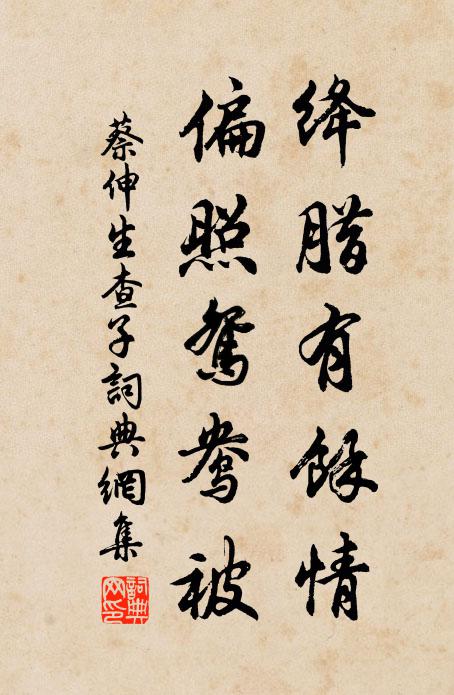 绛腊有馀情
偏照鸳鸯被
蔡伸生查子詞典網集
詞典网印